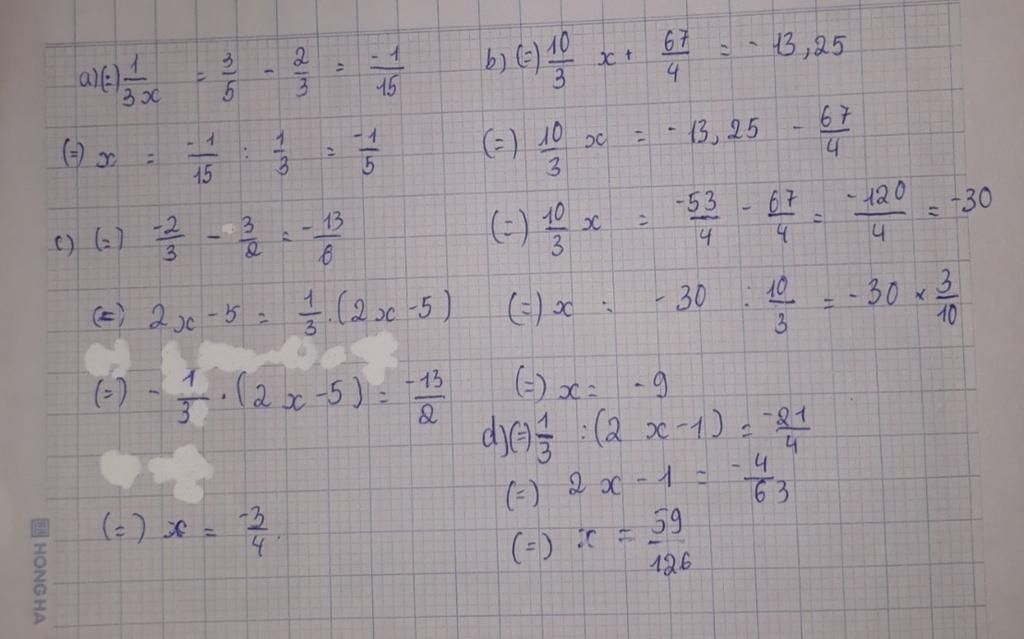 a) (=) 1/3x = 3/5 - 2/3 = -1/15
(=) x = -1/15 : 1/3 = -1/5
c) (=) -2/3 - 3/2 = -13/6
(=) 2x - 5 = 1/3 . (2x - 5)
(=) - 1/3 . (2x - 5) = -13/2
(=) x = -3/4.
b) (=) 10/3 x + 67/4 = - 13,25
(=) 10/3 x = - 13,25 - 67/4
(=) 10/3 x = -53/4 - 67/4 = -120/4 = -30
(=) x = - 30 : 10/3 = - 30 × 3/10
(=) x = - 9
d) (=) 1/3 : (2 x - 1) = -21/4
(=) 2 x - 1 = -4/63
(=) x = 59/126
HONG HA